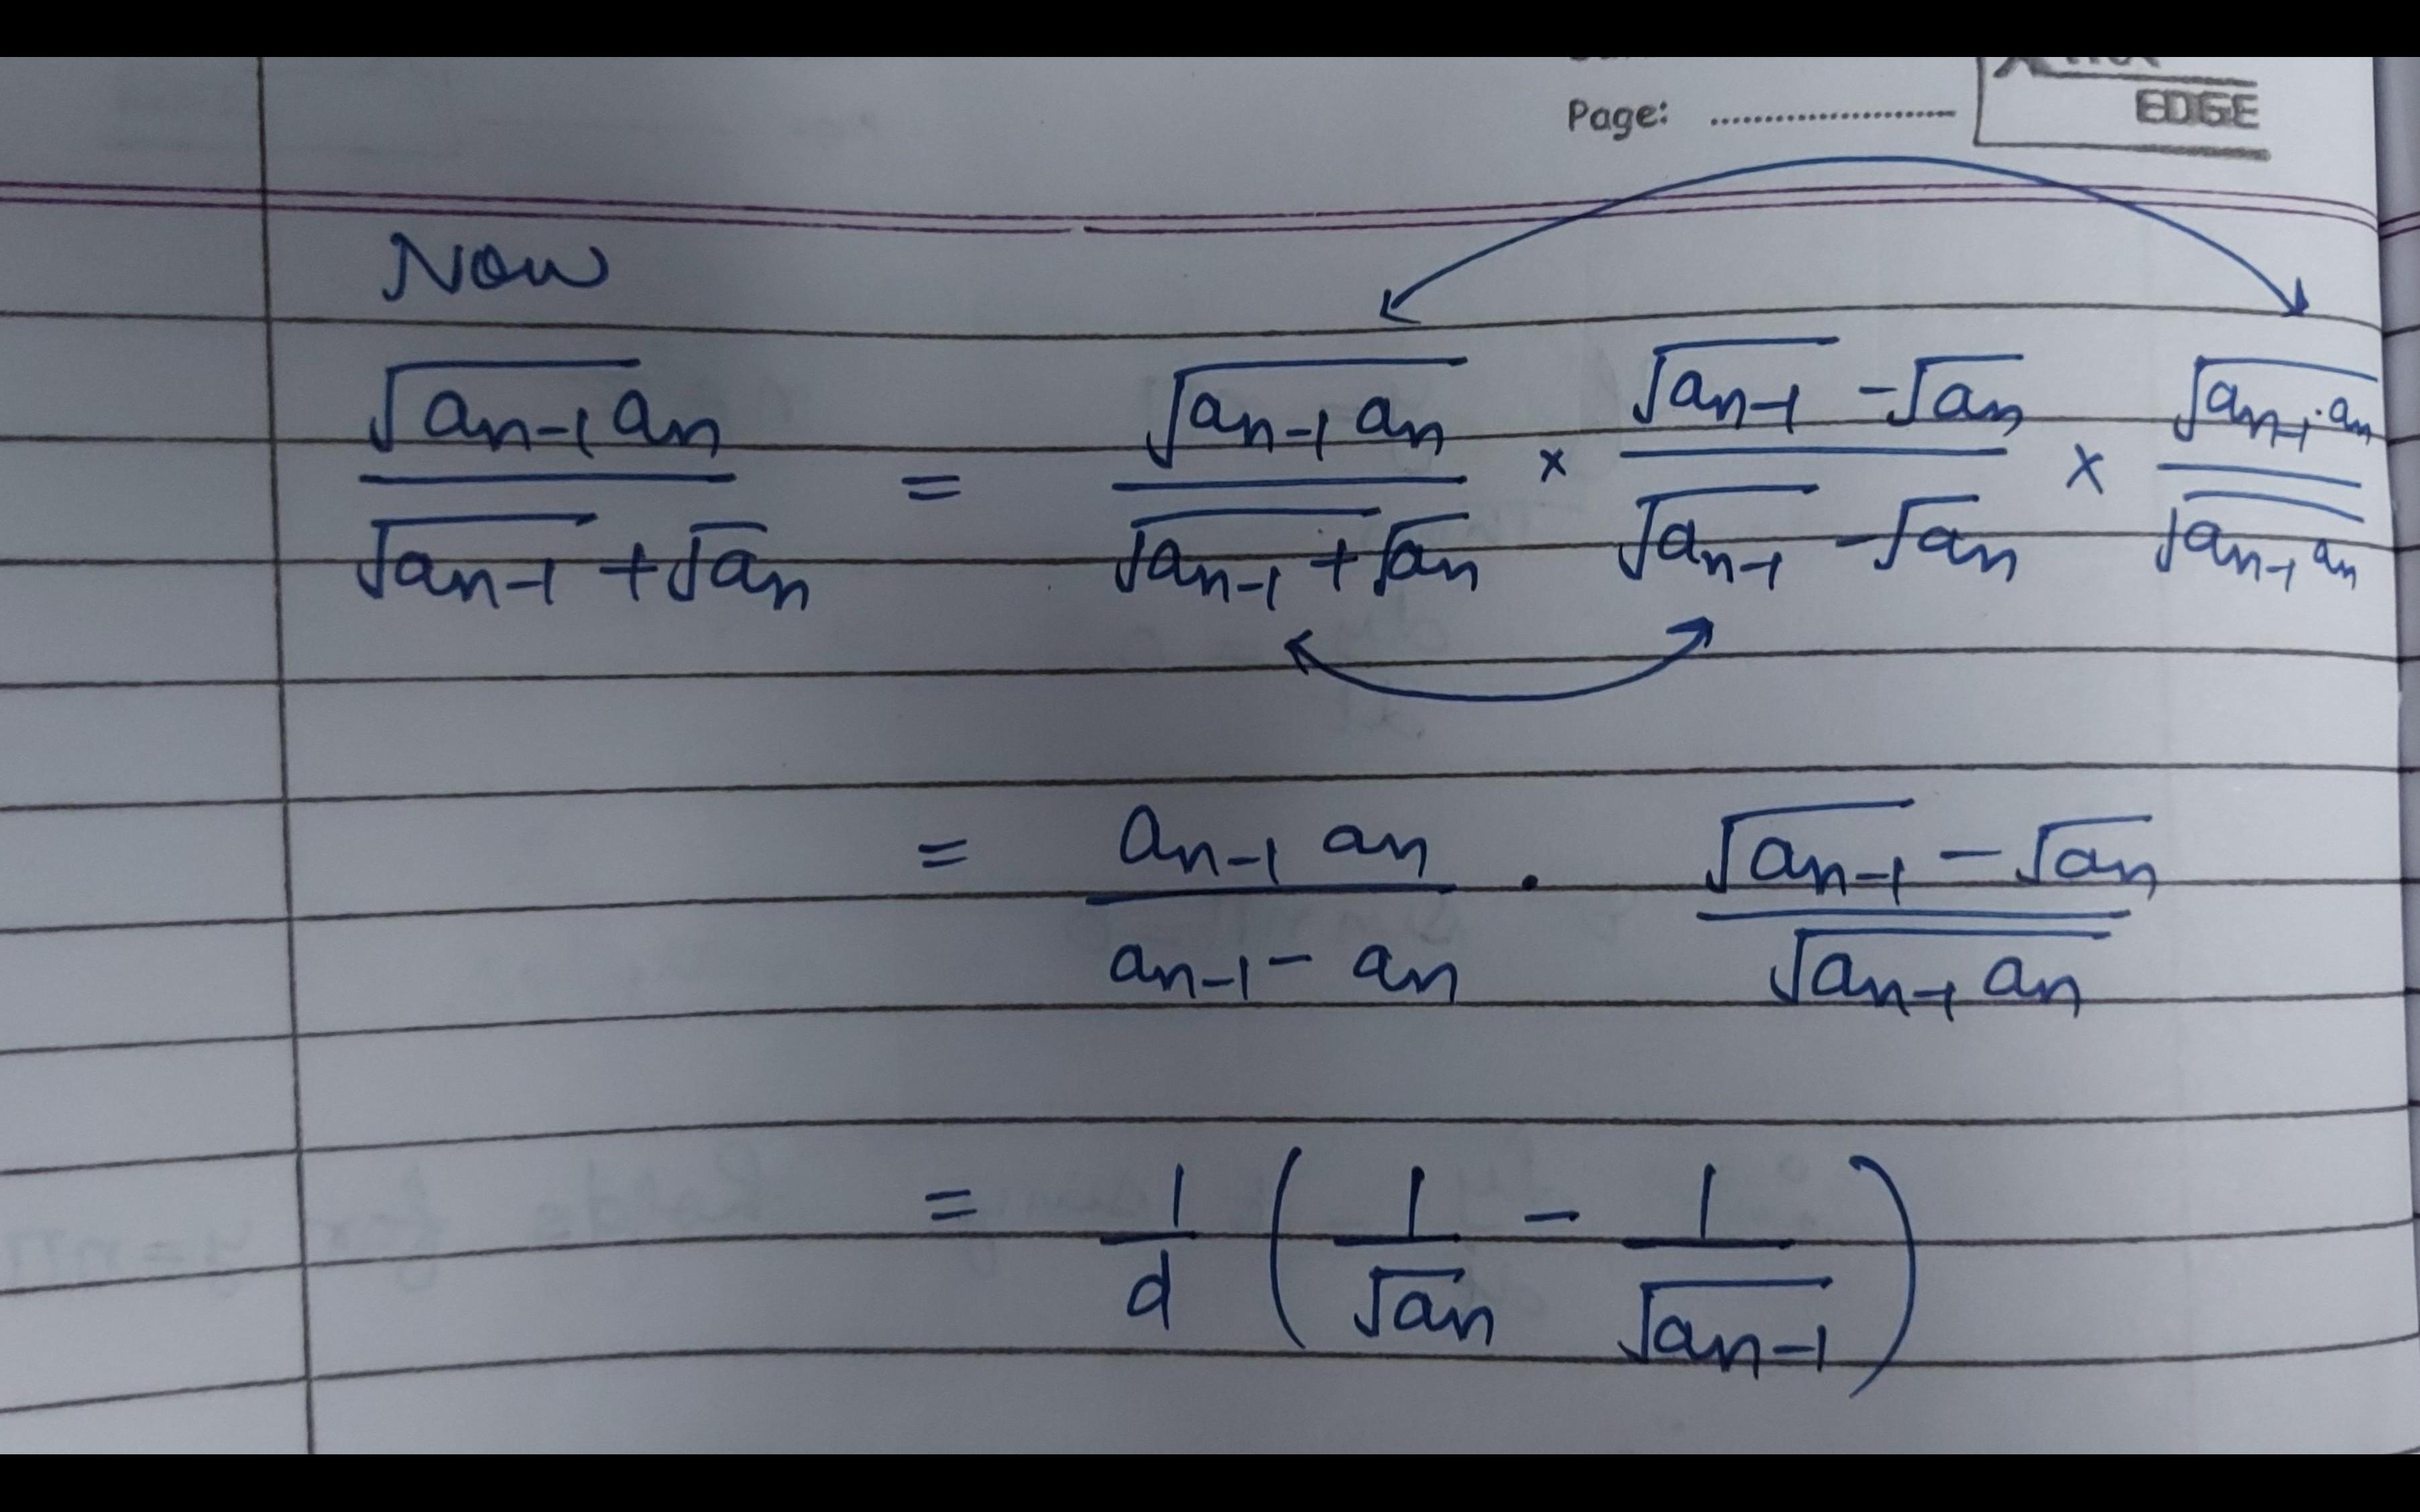 Page: ....................
EDGE
Now
√(a_{n-1} a_n) / (√a_{n-1} + √a_n) = √(a_{n-1} a_n) / (√a_{n-1} + √a_n) × (√a_{n-1} - √a_n) / (√a_{n-1} - √a_n) × √(a_{n-1} · a_n) / √(a_{n-1} a_n)
= a_{n-1} a_n / (a_{n-1} - a_n) · (√a_{n-1} - √a_n) / √(a_{n-1} a_n)
= 1/d (1/√a_n - 1/√a_{n-1})